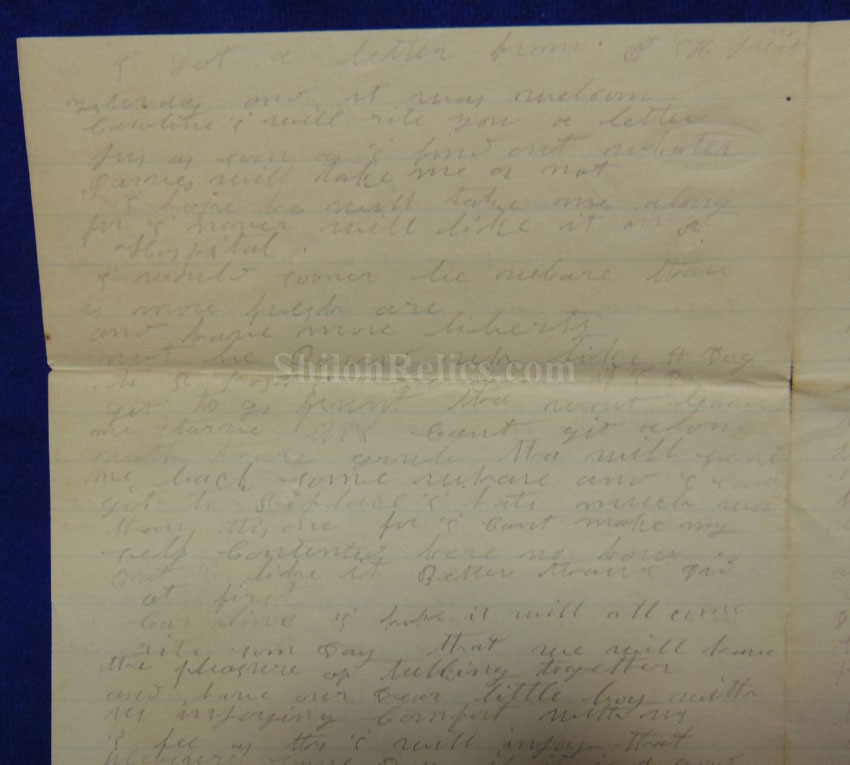 I got a letter from
and it was welcom
Caroline I will rite you a letter
jus as soon as I find out whater
Garnes will take me or not
I hope he will take me along
for I never will like it in a
Hospital .
I would sooner be whare thare
is more fresh are
and have more liberty
not be up like A Dog
ShilohRelics.com
git to go thea wont leave
me starve if I Cant git along
with thare grub thea will send
me back some whare and I
git to a place I hate much
than this one for I Cant make my
self Contented here no how
But I like it Better than I did
at first
Caroline I hope it will all come
rite som Day that we will have
the pleasure of talking together
and have our Dear little boy with
us injoying Comfort with us
I fee as tho I will injoy that